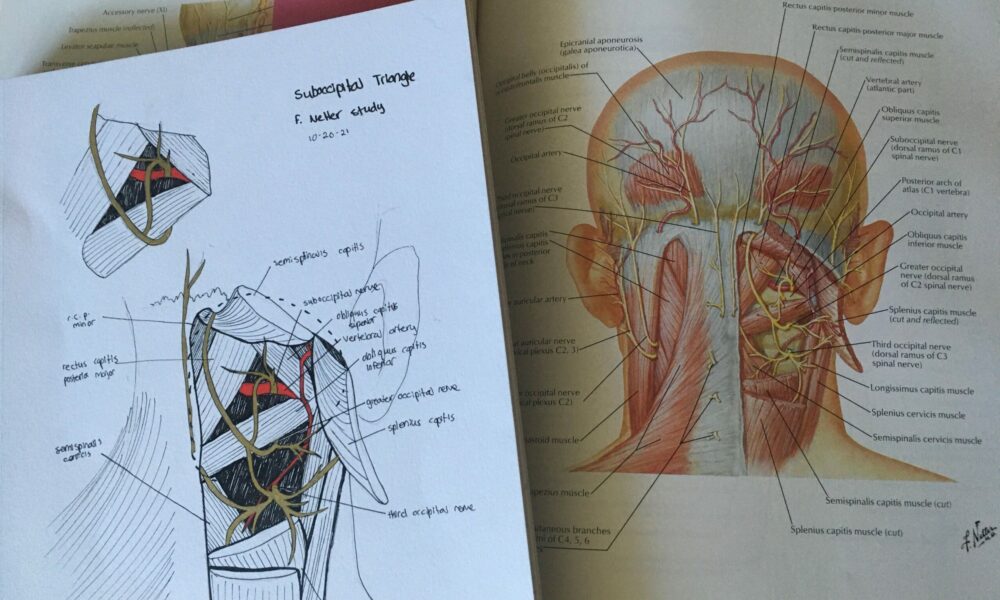 Accessory nerve (XI)
Trapezius muscle (reflected)
Levator scapulae muscle
Suboccipital Triangle
F. Netter study
10-20-21
semispinalis capitis
suboccipital nerve
obliquus capitis
superior
vertebral artery
obliquus capitis
inferior
greater occipital nerve
splenius capitis
third occipital nerve
r.c.p.
minor
rectus capitis
posterior major
semispinalis
Rectus capitis posterior minor muscle
Rectus capitis posterior major muscle
Semispinalis capitis muscle
(cut and reflected)
Vertebral artery
(atlantic part)
Obliquus capitis
superior muscle
Suboccipital nerve
(dorsal ramus of C1
spinal nerve)
Posterior arch of
atlas (C1 vertebra)
Occipital artery
Obliquus capitis
inferior muscle
Greater occipital
nerve (dorsal ramus
of C2 spinal nerve)
Splenius capitis muscle
(cut and reflected)
Third occipital nerve
(dorsal ramus of C3
spinal nerve)
Longissimus capitis muscle
Splenius cervicis muscle
Semispinalis cervicis muscle
Semispinalis capitis muscle (cut)
Splenius capitis muscle (cut)
Epicranial aponeurosis
(galea aponeurotica)
belly (occipitalis) of
muscle
Greater occipital nerve
(dorsal ramus of C2
spinal nerve)
Occipital artery
occipital nerve
ramus of C3
nerve)
capitis
capitis
posterior
of neck
auricular artery
auricular nerve
plexus C2, 3)
occipital nerve
plexus C2)
muscle
muscle
branches
of C4, 5, 6
F. Netter